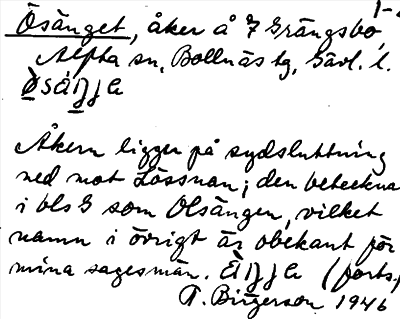 1-2
Ösänget, åker å 7 Grängsbo,
Alfta sn, Bollnäs tg, Gävl. l.
Åkern ligger på sydsluttning
ned mot Lössnan; den betecknas
i bls 3 som Olsängen, vilket
namn i övrigt är obekant för
mina sagesmän. (forts.)
A. Birgerson 1946